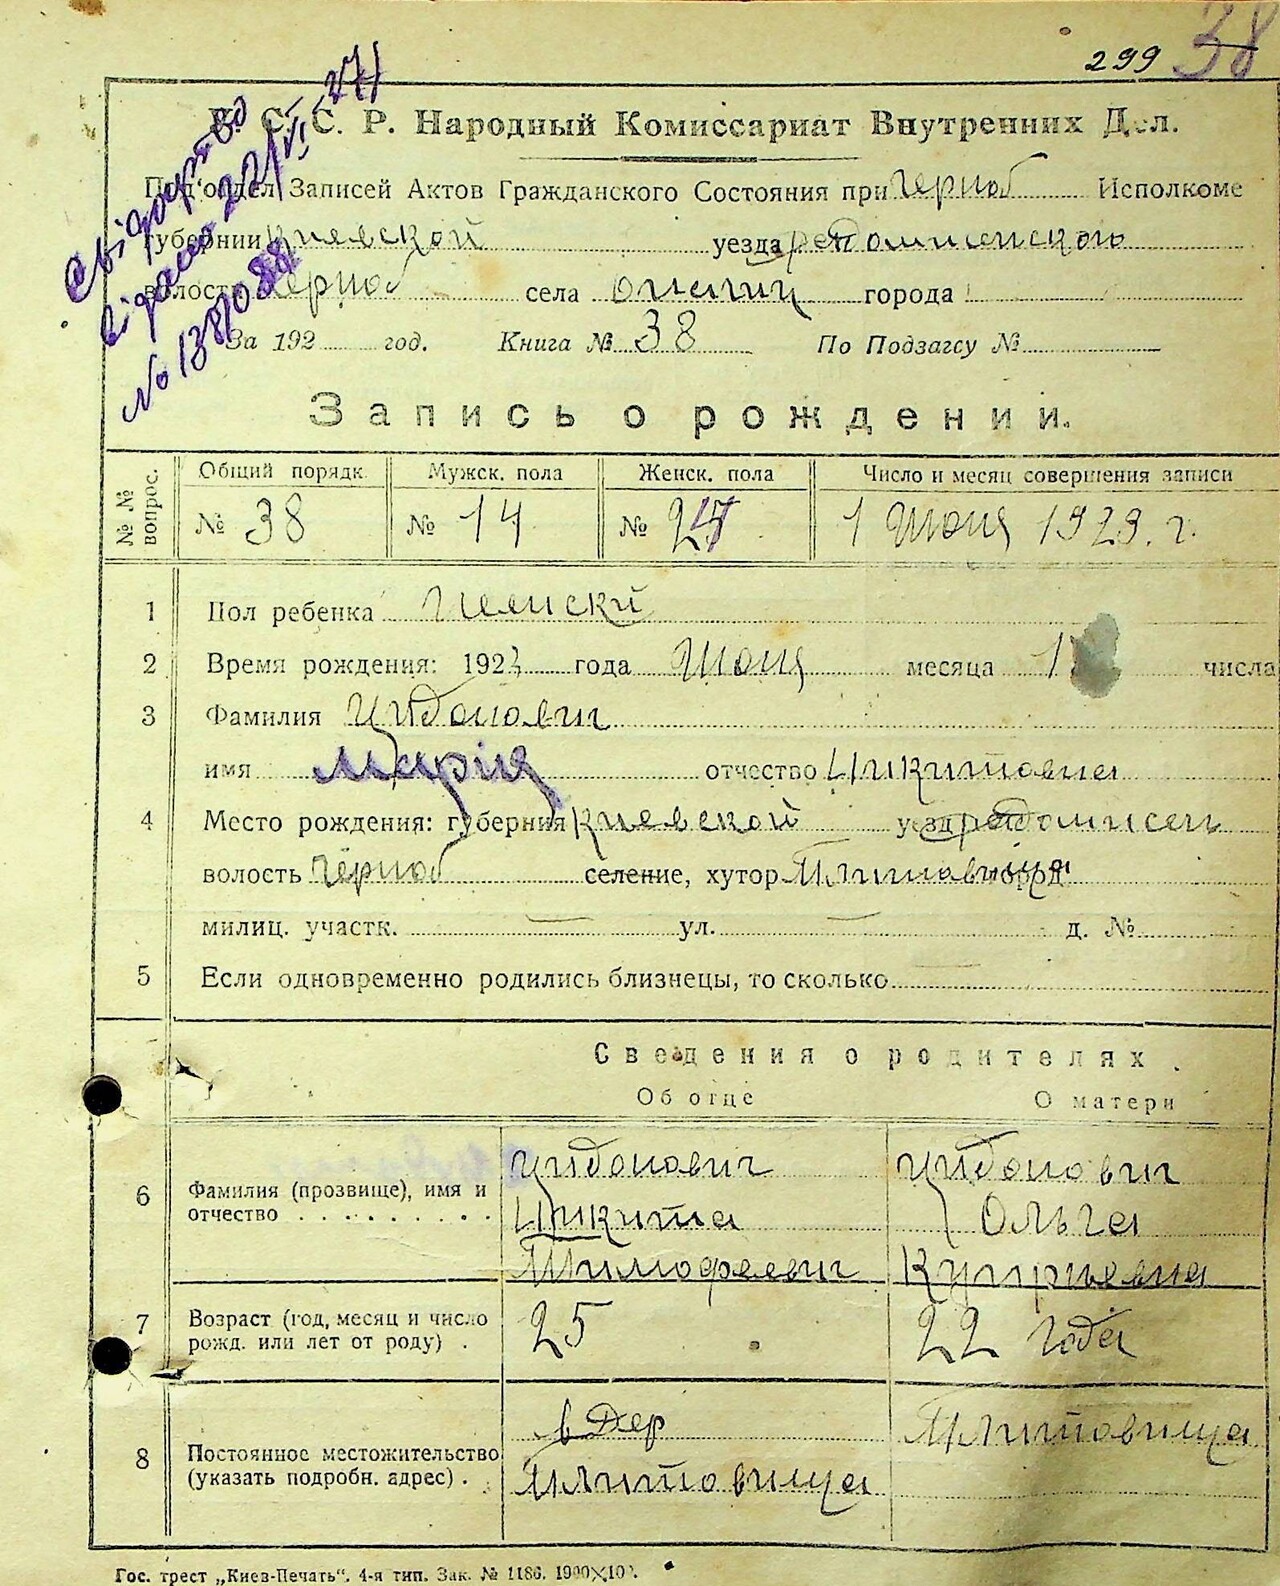 299 38
Свідоцтво
видано 22/VI-27
No 1381088
С. С. Р. Народный Комиссариат Внутренних Дел.
Под'отдел Записей Актов Гражданского Состояния при Черноб Исполкоме
губернии Киевской уезда Радомысенского
волость Черноб села города
За 192 год. Книга № 38 По Подзагсу №
Запись о рождении.
№ № вопрос. Общий порядк. Мужск. пола Женск. пола Число и месяц совершения записи
№ 38 № 14 № 24 1 Июня 1923. г.
1 Пол ребенка Женский
2 Время рождения: 1923 года Июня месяца 1 числа
3 Фамилия Цидонович
имя Марія отчество Никитовна
4 Место рождения: губерния Киевской уезд Радомисен
волость Черноб селение, хутор Плитовища
милиц. участк. — ул. — д. №
5 Если одновременно родились близнецы, то сколько —
Сведения о родителях.
Об отце О матери
6 Фамилия (прозвище), имя и отчество Цидонович Никита Тимофеевич Цидонович Ольга Куприевна
7 Возраст (год, месяц и число рожд. или лет от роду) . 25 22 года
8 Постоянное местожительство (указать подробн. адрес) . в дер Плитовища Плитовища
Гос. трест „Киев-Печать“. 4-я тип. Зак. № 1186. 1900×10